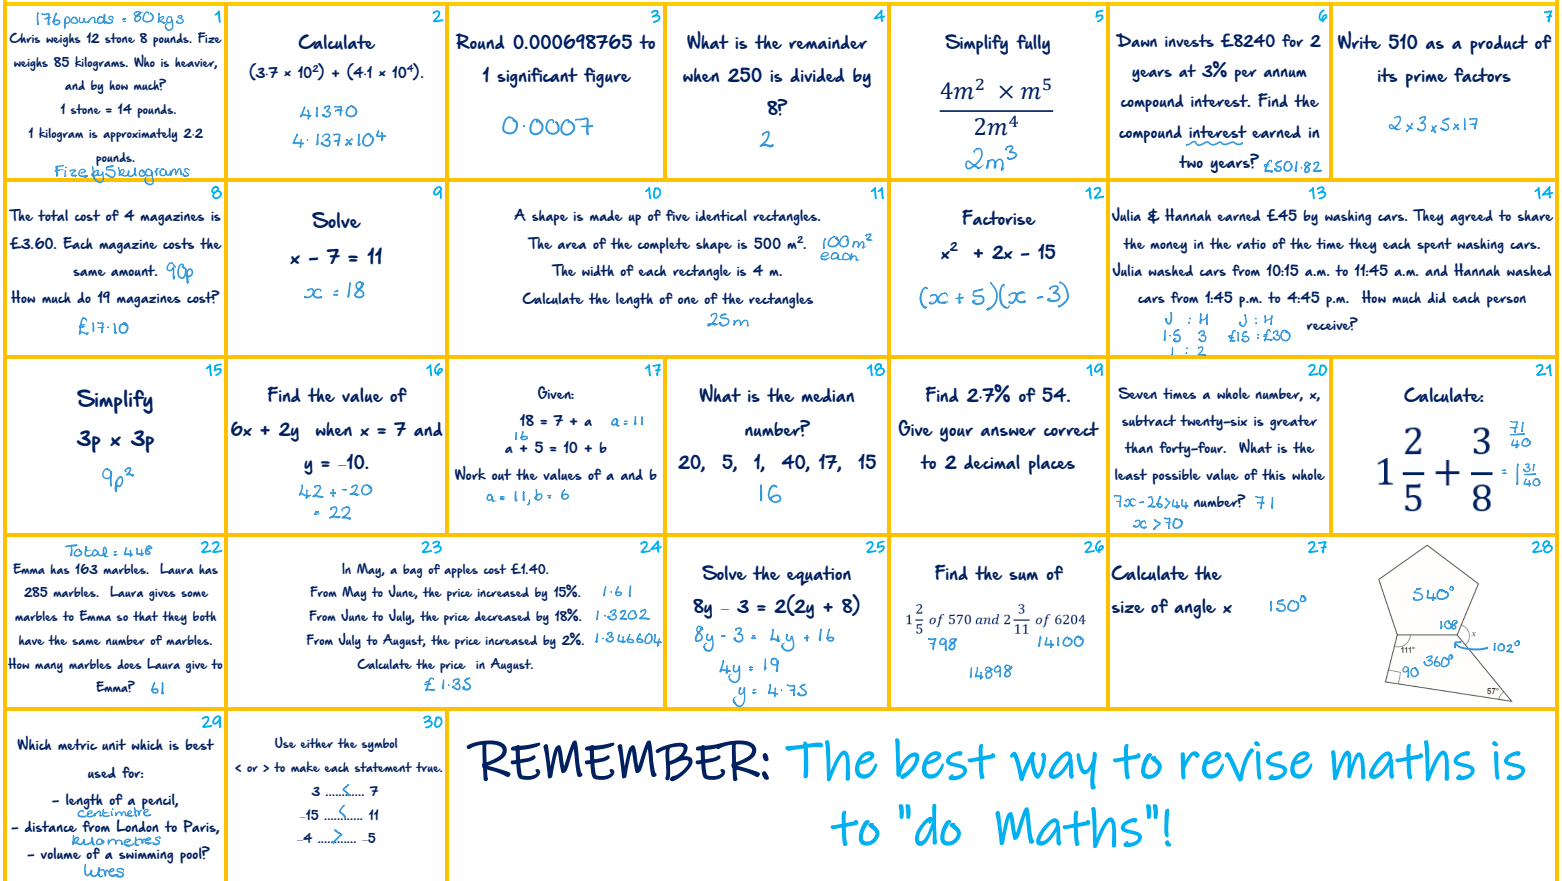 176 pounds = 80 kgs 1
Chris weighs 12 stone 8 pounds. Fize
weighs 85 kilograms. Who is heavier,
and by how much?
1 stone = 14 pounds.
1 kilogram is approximately 2.2
pounds.
Fize by 5 kilograms
2
Calculate
(3.7 × 10²) + (4.1 × 10⁴).
41370
4.137 × 10⁴
3
Round 0.000698765 to
1 significant figure
0.0007
4
What is the remainder
when 250 is divided by
8?
2
5
Simplify fully
4m² × m⁵
2m⁴
2m³
6
Dawn invests £8240 for 2
years at 3% per annum
compound interest. Find the
compound interest earned in
two years? £501.82
7
Write 510 as a product of
its prime factors
2 × 3 × 5 × 17
8
The total cost of 4 magazines is
£3.60. Each magazine costs the
same amount. 90p
How much do 19 magazines cost?
£17.10
9
Solve
x – 7 = 11
x = 18
10 11
A shape is made up of five identical rectangles.
The area of the complete shape is 500 m². 100m²
each
The width of each rectangle is 4 m.
Calculate the length of one of the rectangles
25m
12
Factorise
x² + 2x – 15
(x + 5)(x - 3)
13 14
Julia & Hannah earned £45 by washing cars. They agreed to share
the money in the ratio of the time they each spent washing cars.
Julia washed cars from 10:15 a.m. to 11:45 a.m. and Hannah washed
cars from 1:45 p.m. to 4:45 p.m. How much did each person
receive?
J : H J : H
1.5 3 £15 : £30
1 : 2
15
Simplify
3p x 3p
9p²
16
Find the value of
6x + 2y when x = 7 and
y = –10.
42 + -20
= 22
17
Given:
18 = 7 + a a = 11
16
a + 5 = 10 + b
Work out the values of a and b
a = 11, b = 6
18
What is the median
number?
20, 5, 1, 40, 17, 15
16
19
Find 2.7% of 54.
Give your answer correct
to 2 decimal places
20
Seven times a whole number, x,
subtract twenty-six is greater
than forty-four. What is the
least possible value of this whole
7x - 26 > 44 number? 71
x > 70
21
Calculate:
1 2/5 + 3/8
71/40
= 1 31/40
Total = 448 22
Emma has 163 marbles. Laura has
285 marbles. Laura gives some
marbles to Emma so that they both
have the same number of marbles.
How many marbles does Laura give to
Emma? 61
23 24
In May, a bag of apples cost £1.40.
From May to June, the price increased by 15%. 1.61
From June to July, the price decreased by 18%. 1.3202
From July to August, the price increased by 2%. 1.346604
Calculate the price in August.
£1.35
25
Solve the equation
8y – 3 = 2(2y + 8)
8y - 3 = 4y + 16
4y = 19
y = 4.75
26
Find the sum of
1 2/5 of 570 and 2 3/11 of 6204
798 14100
14898
27 28
Calculate the
size of angle x 150°
540°
108
x
111° 102°
360°
90
57°
29
Which metric unit which is best
used for:
– length of a pencil,
centimetre
– distance from London to Paris,
kilometres
– volume of a swimming pool?
litres
30
Use either the symbol
< or > to make each statement true.
3 .....<..... 7
–15 .....<..... 11
–4 .....>..... –5
REMEMBER: The best way to revise maths is
to "do Maths"!